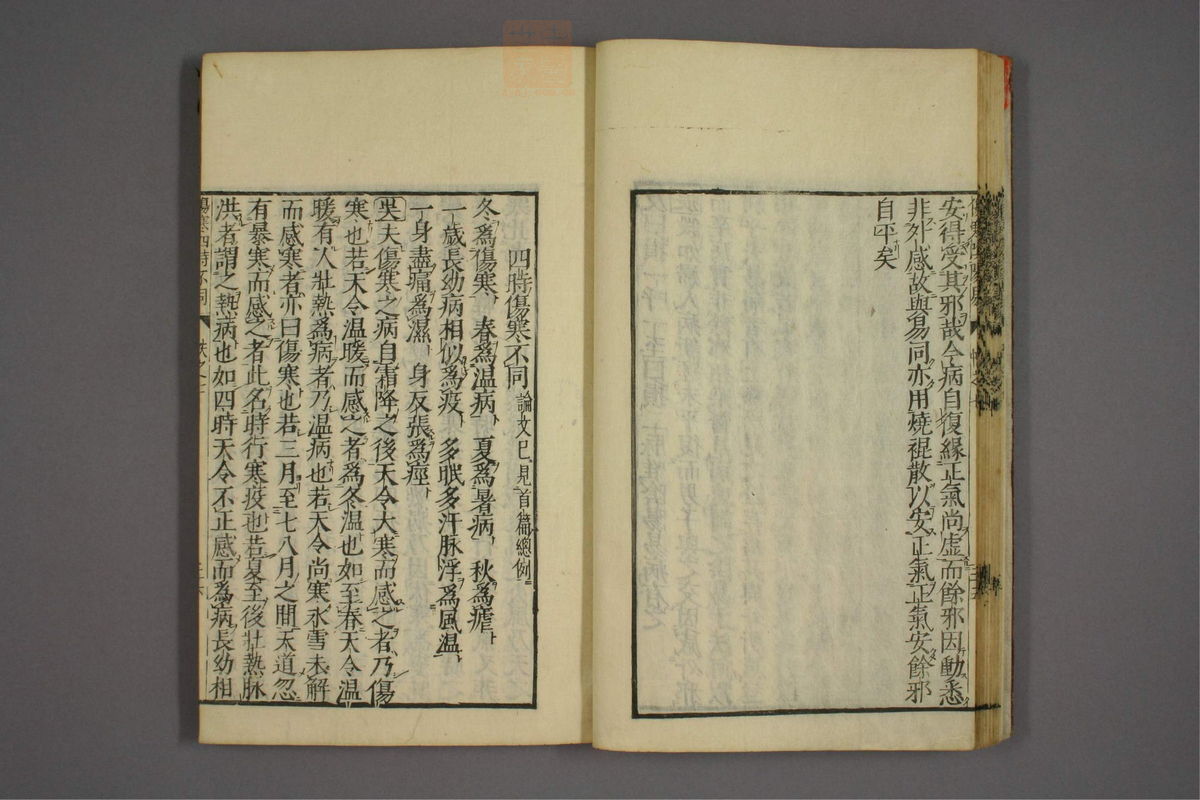 安得受其邪哉今病自復緣正氣尚虛而餘邪因動悉
非外感故與易同亦用燒裩散以安正氣正氣安餘邪
自平矣
四時傷寒不同 論文已見首篇總例
冬爲傷寒 春爲温病 夏爲暑病 秋爲瘧
一歲長幼病相似爲疫 多眠多汗脉浮爲風温
一身盡痛爲濕 身反張爲痙
吴夫傷寒之病自霜降之後天令大寒而感之者乃傷
寒也若天令温暖而感之者爲冬温也如至春天令温
暖有人壯熱爲病者乃温病也若天令尚寒冰雪未解
而感寒者亦曰傷寒也若三月至七八月之間天道忽
有暴寒而感之者此名時行寒疫也若夏至後壯熱脉
洪者謂之熱病也如四時天令不正感而爲病長幼相
傷寒四時不同